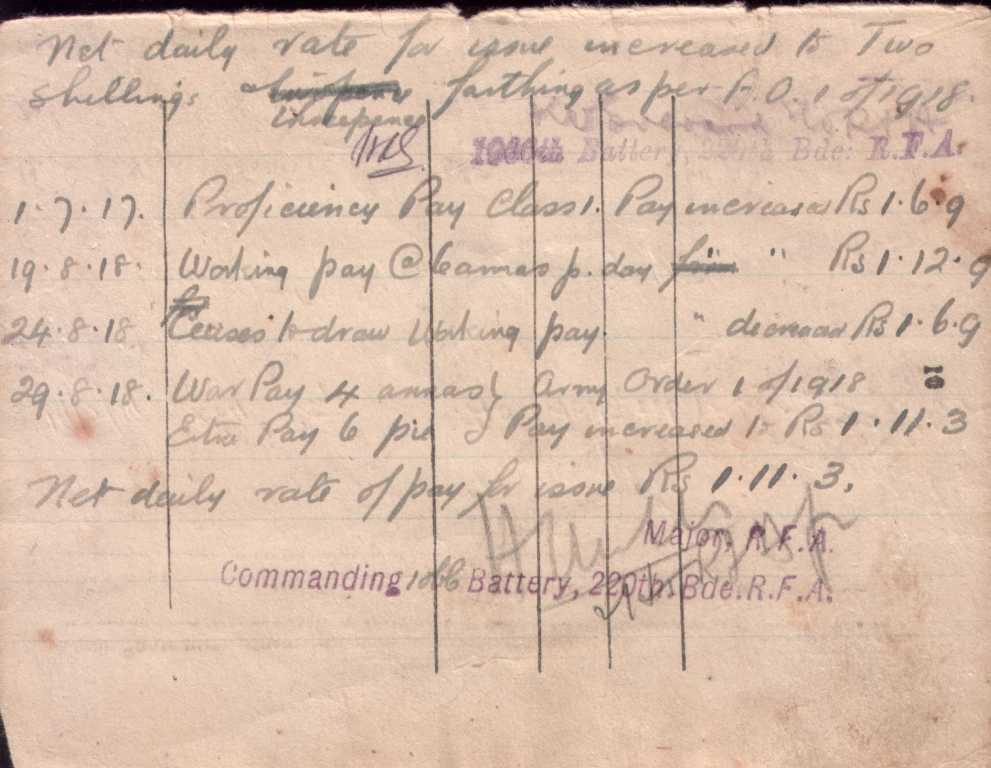 Net daily rate for issue increased to Two
Shillings farthing as per A.O. 1 of 1918.
threepence
Battery, 220th Bde: R.F.A.
1.7.17. Proficiency Pay Class 1. Pay increased Rs 1.6.9
19.8.18. Working pay @ 6 annas p. day " Rs 1.12.9
24.8.18 Ceases to draw Working pay. " decreased Rs 1.6.9
29.8.18. War Pay 4 annas } Army Order 1 of 1918
10
Extra Pay 6 pie } Pay increased to Rs 1.11.3
Net daily rate of pay for issue Rs 1.11.3.
Major, R.F.A.
Commanding 1066 Battery, 220th. Bde. R.F.A.